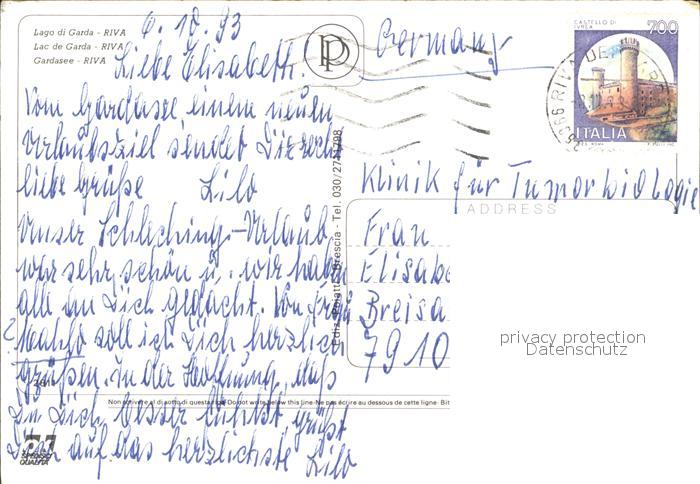 Lago di Garda - RIVA
Lac de Garda - RIVA
Gardasee - RIVA
6.10.93
Liebe Elisabeth!
Vom Gardasee, einem neuen
Urlaubsziel sendet Dir recht
liebe Grüße Lilo
Unser Schleching-Urlaub
war sehr schön u. wir haben
alle an Dich gedacht. Von Frau
soll ich Dich herzlich
grüßen. In der Hoffnung, daß
Du Dich besser fühlst, grüßt
Dich auf das herzlichste Lilo
PP
Germany
CASTELLO DI
IVREA
700
ITALIA
RIVA DEL
Klinik für Tumorbiologie
ADDRESS
Frau
Elisabe
Breisa
7910
privacy protection
Datenschutz
Brescia - Tel. 030/
Non scrivere al di sotto di questa riga-Do not write below this line-Ne pas écrire au dessous de cette ligne- Bit